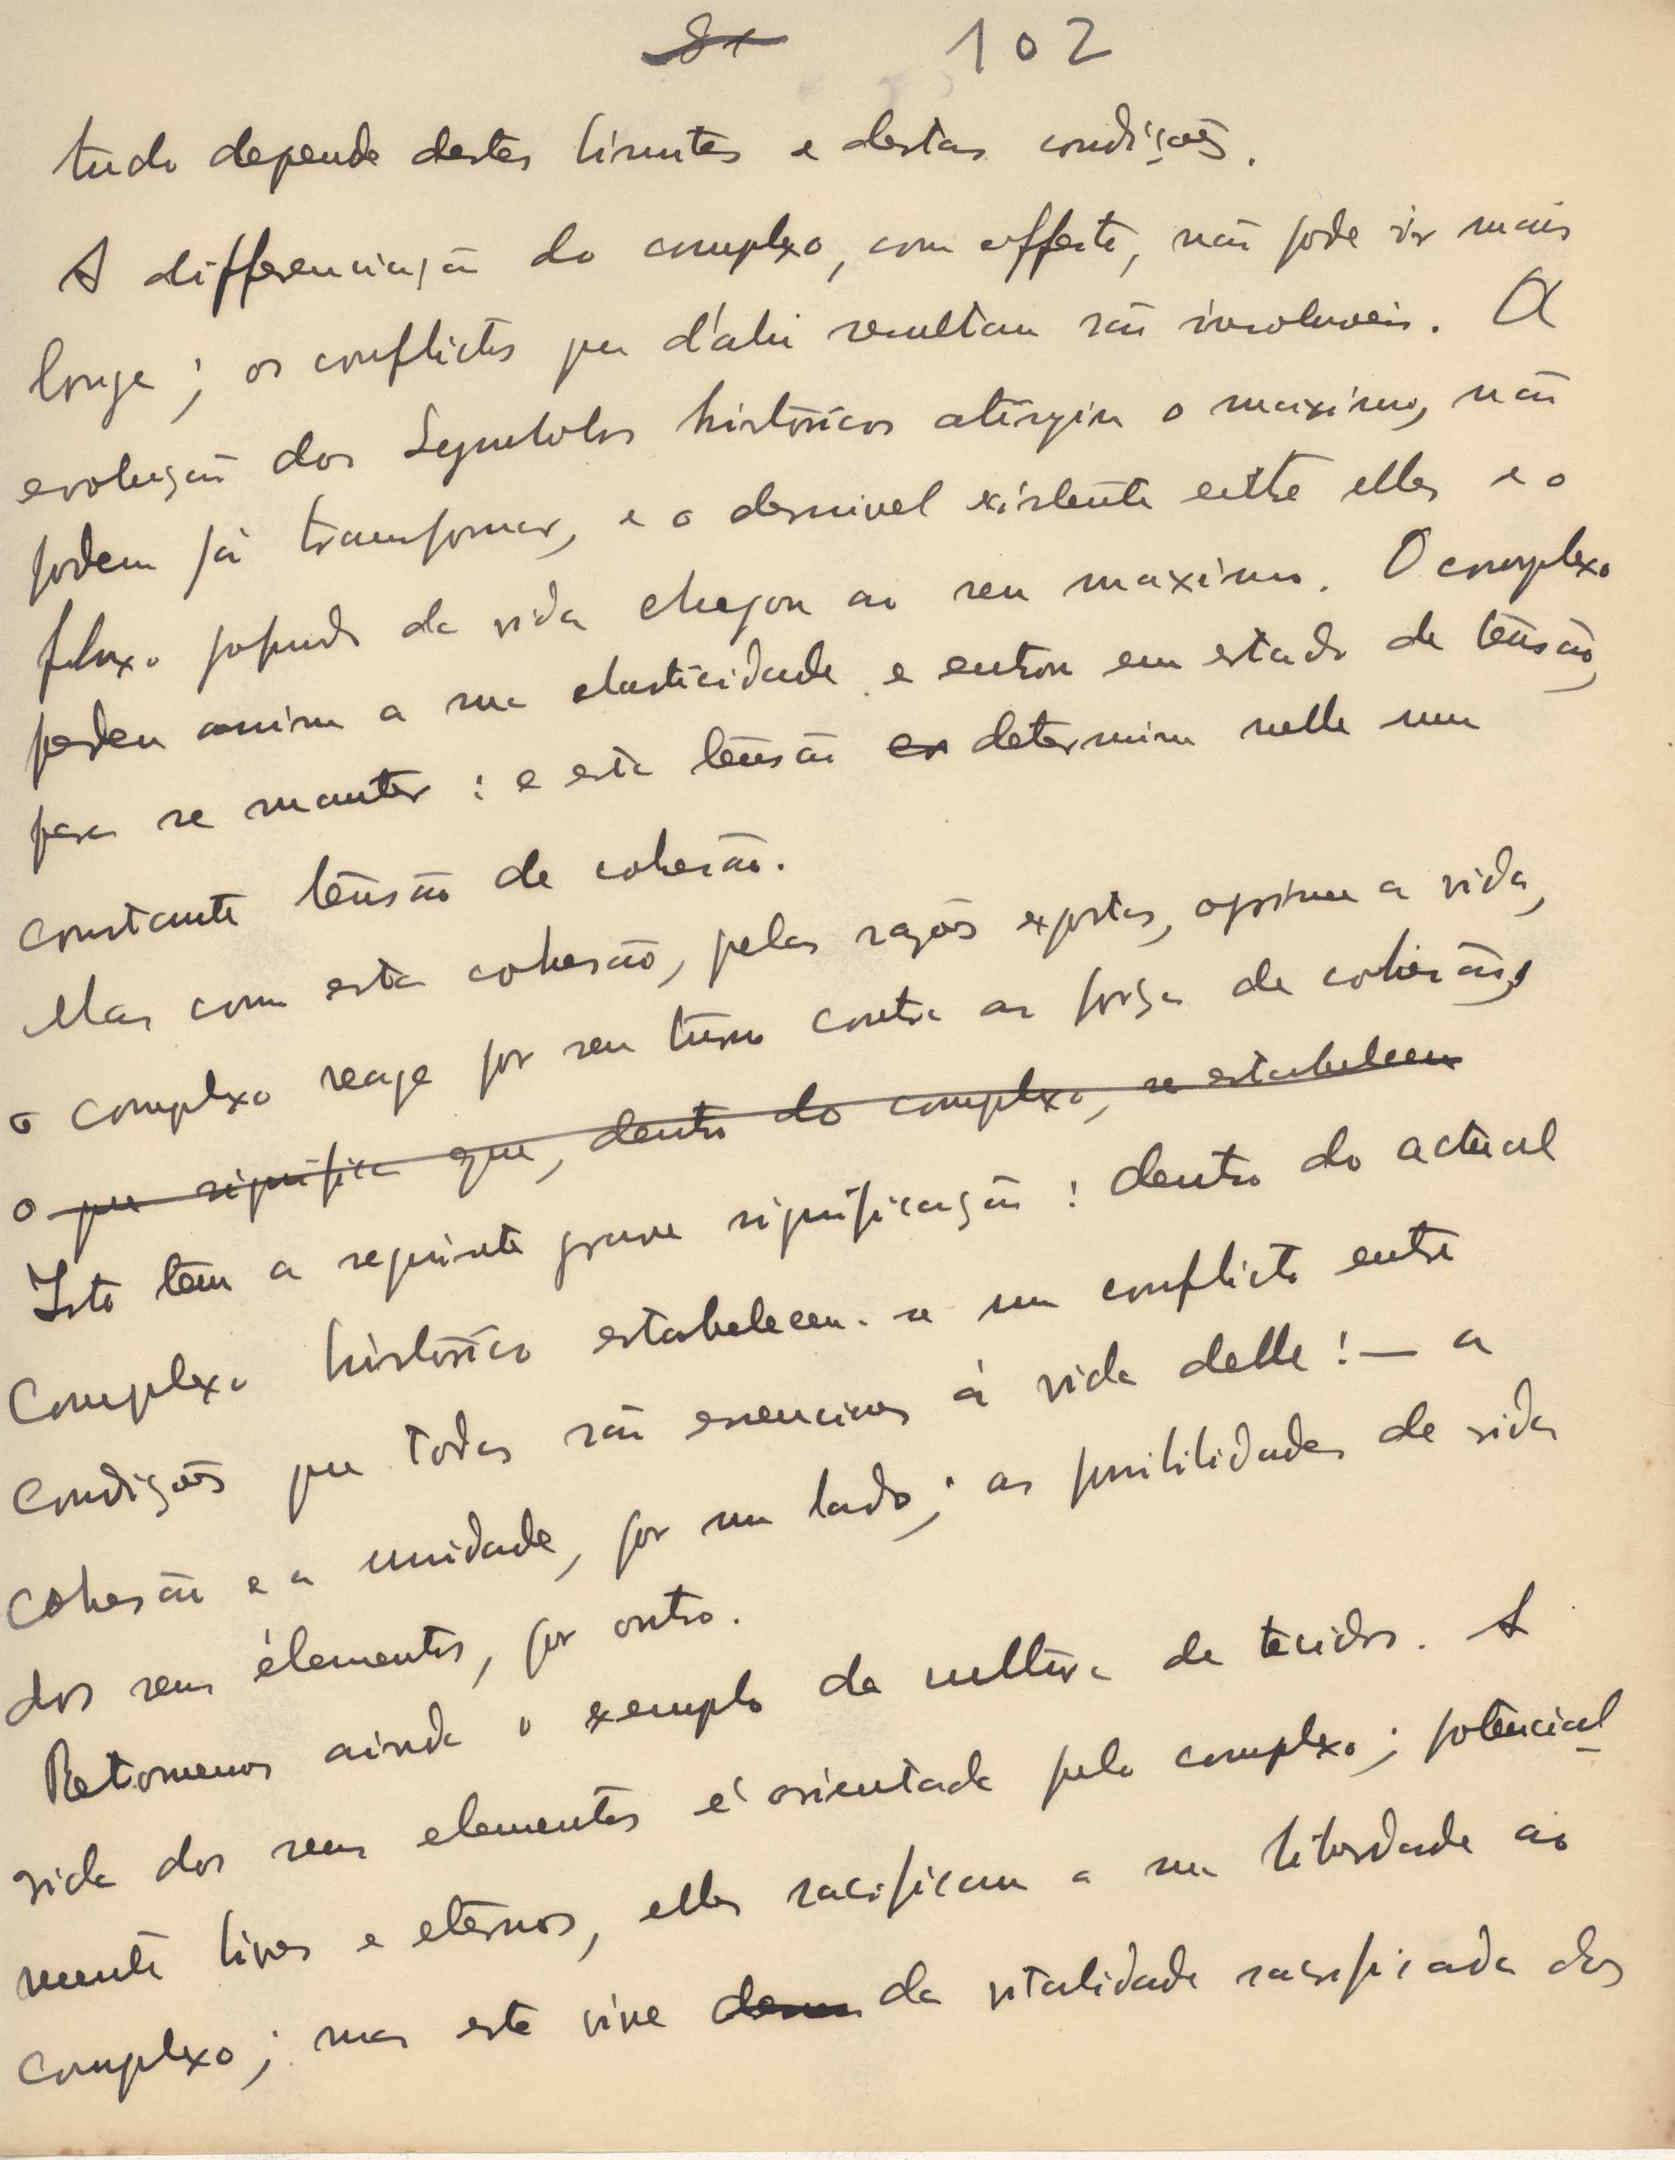 81 102
tudo depende destes limites e destas condições.
A differenciação do complexo, com effeito, não pode ir mais
longe; os conflictos que d'ahi resultam são insoluveis. A
evolução dos symbolos históricos atingiu o maximo, não
podem já transformar, e o desnivel existente entre elles e o
fluxo profundo da vida chegou ao seu maximo. O complexo
perdeu assim a sua elasticidade e entrou em estado de tensão,
para se manter: e esta tensão determina nelle uma
constante tensão de cohesão.
Mas com esta cohesão, pelas razões expostas, opprime a vida,
o complexo reage por seu turno contra as força de cohesão,
o que significa que, dentro do complexo, se estabelecem
Isto tem a seguinte grave significação: dentro do actual
Complexo histórico estabeleceu-se um conflicto entre
Condições que todas são essenciaes á vida delle: — a
Cohesão e a unidade, por um lado; as possibilidades de vida
dos seus élementos, por outro.
Retomemos ainda o exemplo da cultura de tecidos. A
vida dos seus elementos é orientada pelo complexo; potencial
mente livres e eternos, elles sacrificam a sua liberdade ao
complexo; mas este vive da vitalidade sacrificada dos